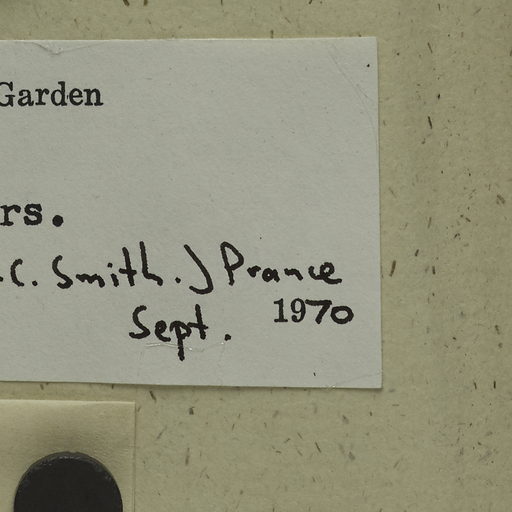 Garden
rs.
.C. Smith.) Prance
Sept. 1970